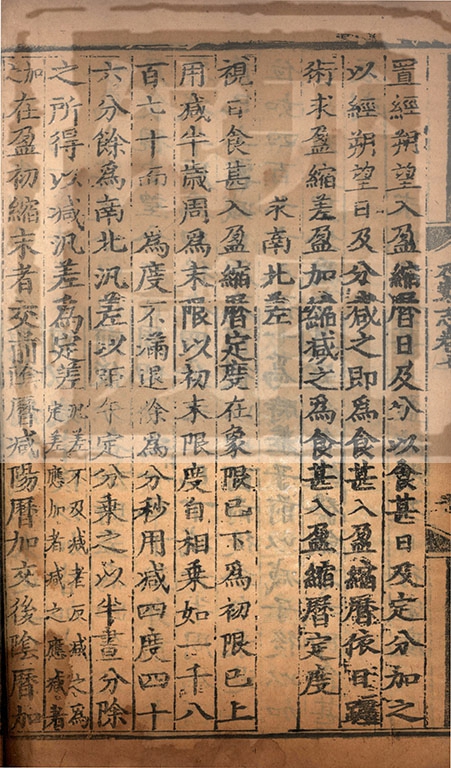 置經朔望入盈縮曆日及分以食甚日及定分加之
以經朔望日及分減之即爲食甚入盈縮曆依日躔
術求盈縮差盈加縮減之爲食甚入盈縮曆定度
求南北差
視日食甚入盈縮曆定度在象限已下爲初限已上
用减半歲周爲末限以初末限度自相乘如一千八
百七十而 爲度不滿退除爲分秒用减四度四十
六分餘爲南北汎差以距午定分乘之以半晝分除
之所得以减汎差爲定差汎差不及减者反减之爲定差應加者减之應减者
加之在盈初縮末者交前陰曆減陽曆加交後陰曆加